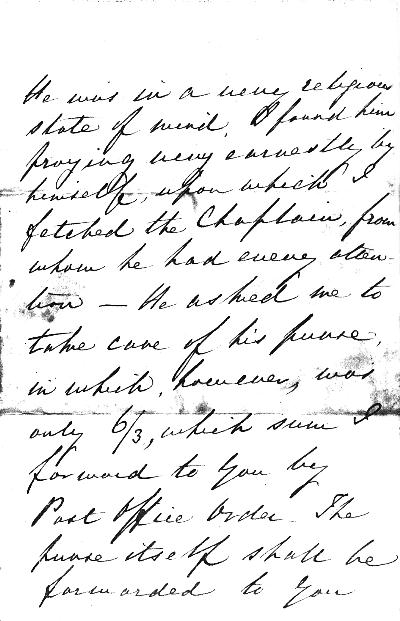 He was in a very religious
state of mind. I found him
praying very earnestly by
himself, upon which I
fetched the Chaplain, from
whom he had every atten-
tion — He asked me to
take care of his purse,
in which, however, was
only 6/3, which sum I
forward to you by
Post Office Order. The
purse itself shall be
forwarded to you